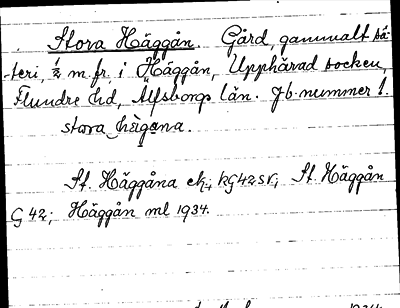 Stora Häggån. Gård, gammalt sä-
teri, ½ m. fr. i Häggån, Upphärad socken,
Flundre hd, Älfsborgs län. Jb. nummer 1.
stora hägana.
St. Häggåna ek.; kG42sv; St. Häggån
G 42; Häggån ml 1934.